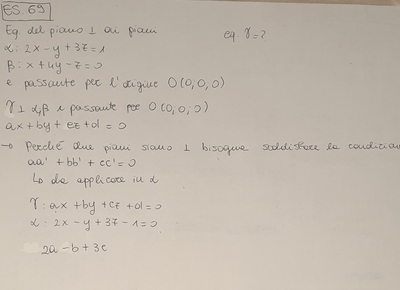 ES. 69
Eq. del piano ⊥ ai piani eq. γ=?
α: 2x-y+3z=1
β: x+4y-z=0
e passante per l'origine O(0,0,0)
γ ⊥ α,β e passante per O(0,0,0)
ax+by+cz+d=0
→ Perché due piani siano ⊥ bisogna soddisfare la condizione
aa' + bb' + cc'=0
↳ da applicare in α
γ: ax+by+cz+d=0
α: 2x-y+3z-1=0
2a-b+3c